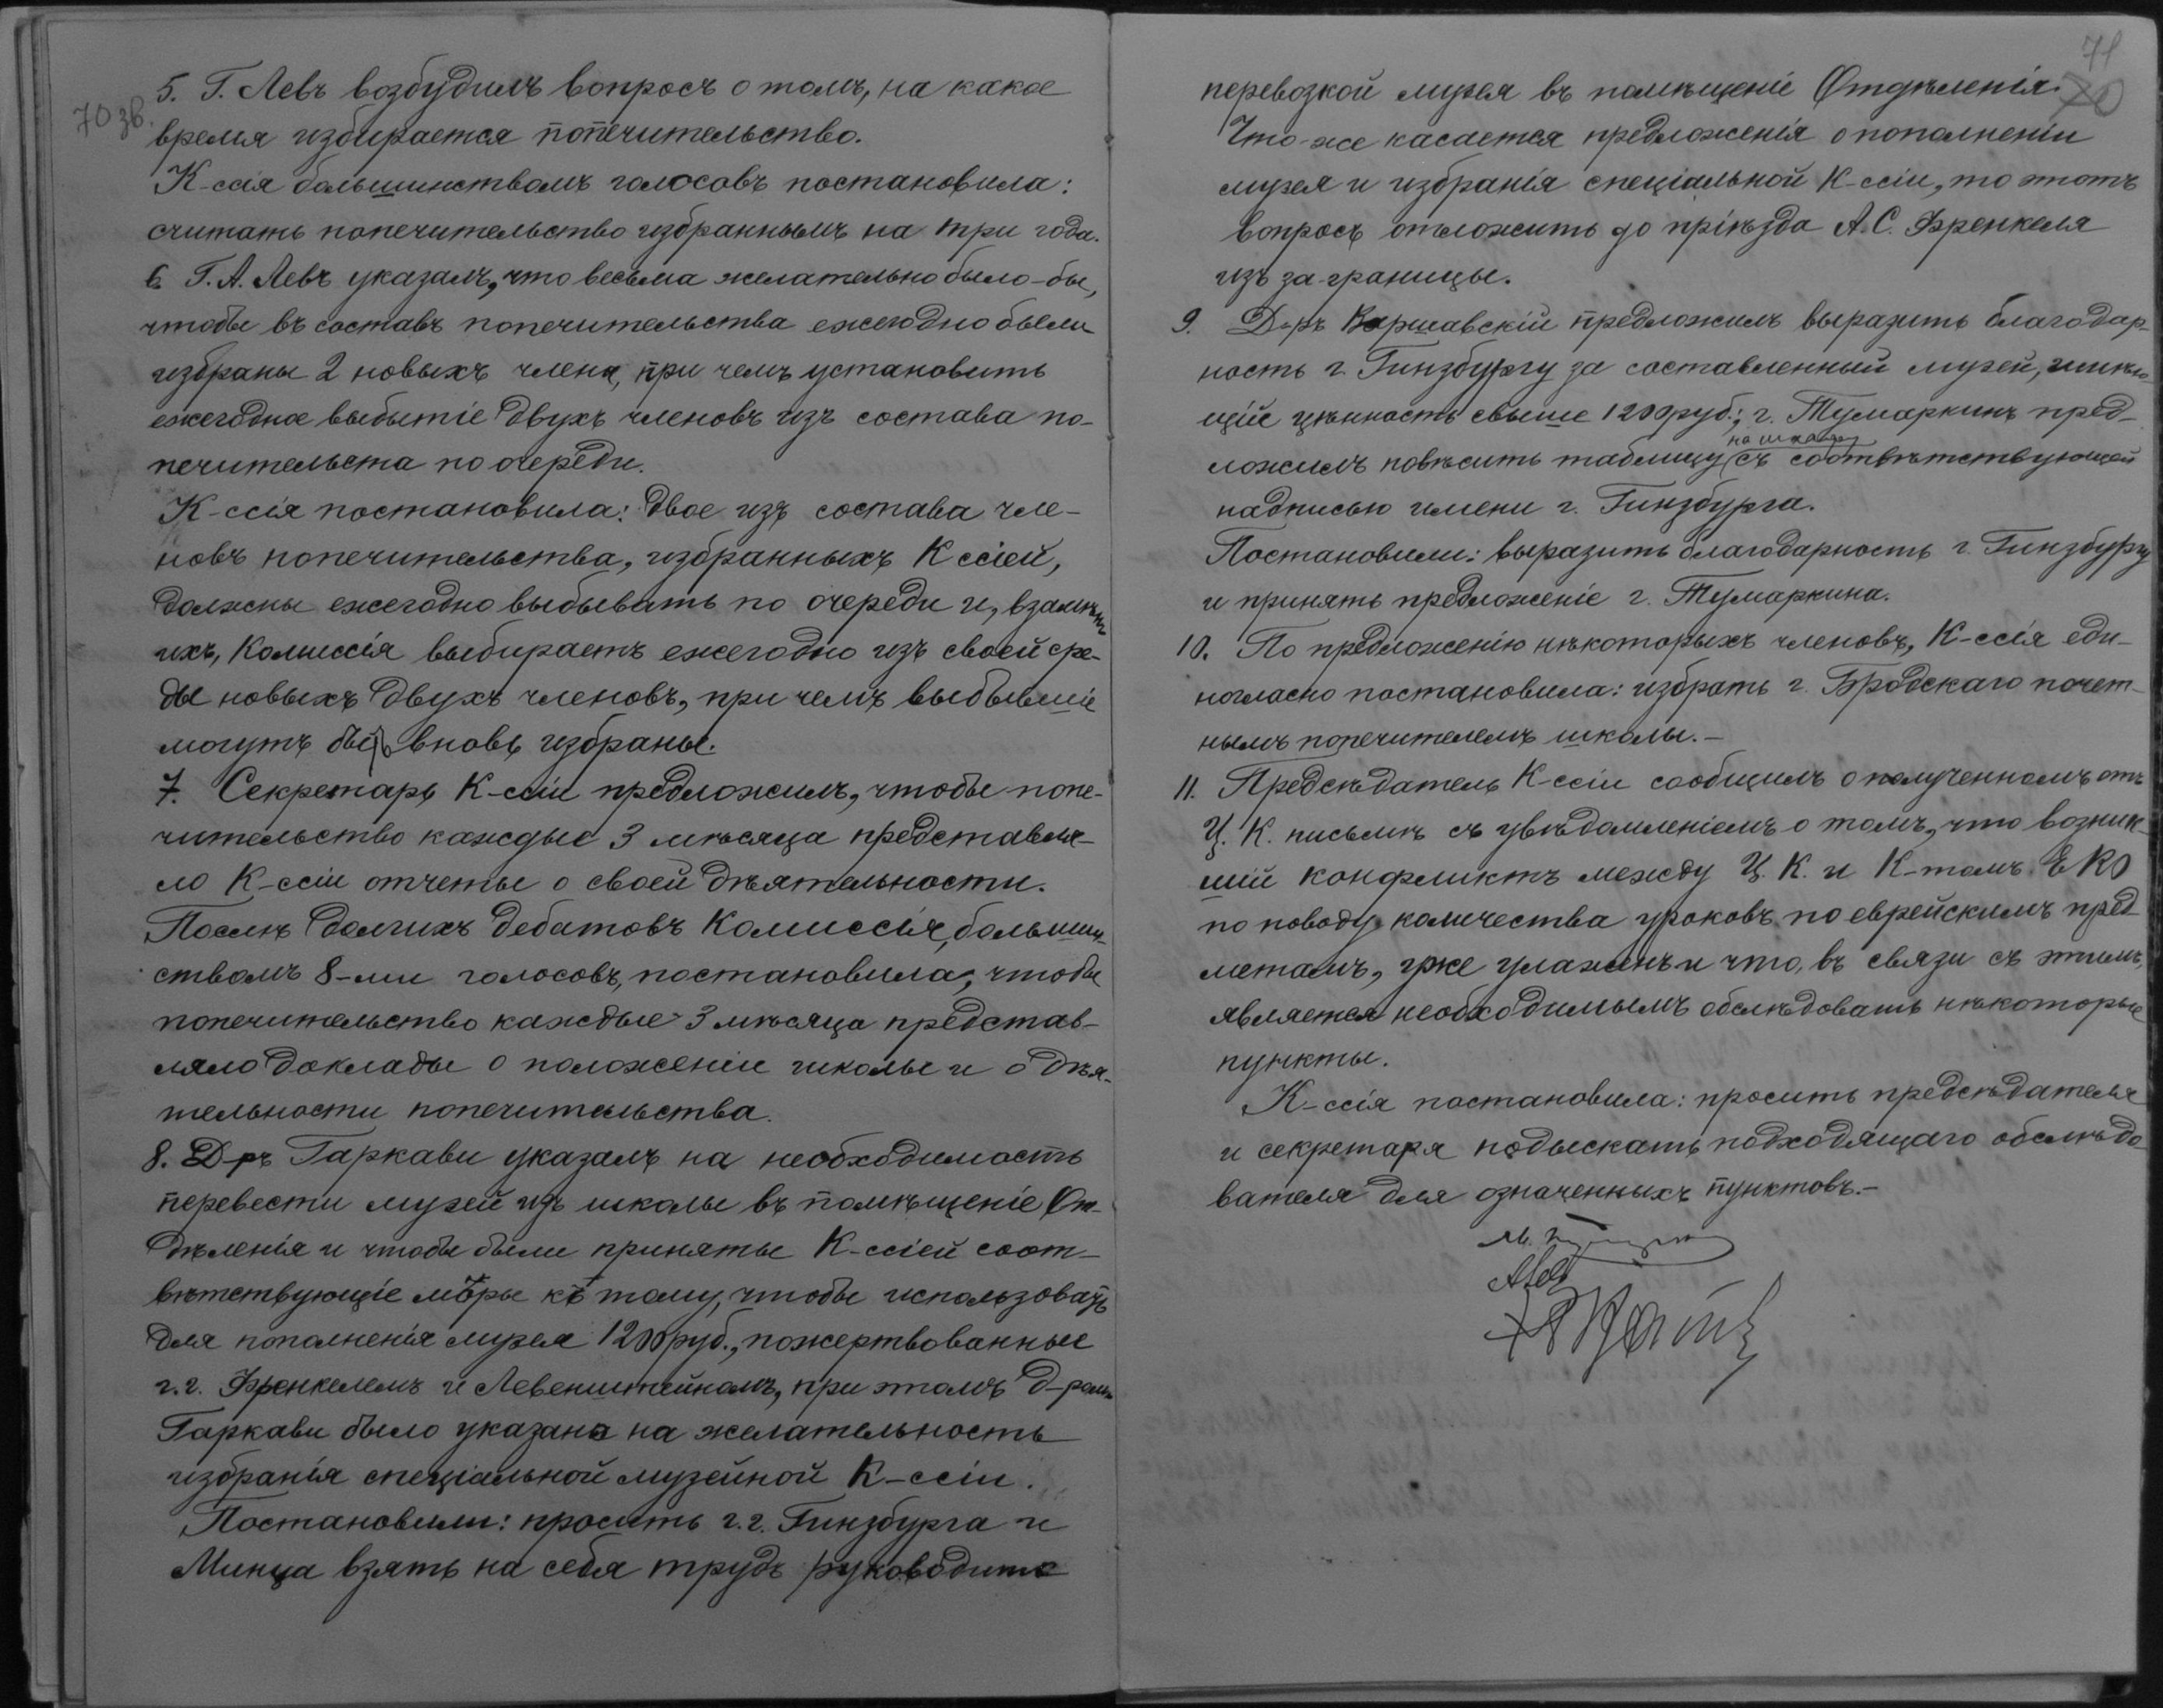 70 зв.
5. Г. Левъ возбудилъ вопросъ о томъ, на какое
время избирается попечительство.
К-ссія большинствомъ голосовъ постановила:
считать попечительство избраннымъ на три года.
6. Г. А. Левъ указалъ, что весьма желательно было-бы,
чтобы въ составъ попечительства ежегодно были
избраны 2 новыхъ члена, при чемъ установить
ежегодное выбытіе двухъ членовъ изъ состава по-
печительста по очереди.
К-ссія постановила: двое изъ состава чле-
новъ попечительства, избранныхъ К ссіей,
должны ежегодно выбывать по очереди и, взамѣнъ
ихъ, Комиссія выбираетъ ежегодно изъ своей сре-
ды новыхъ двухъ членовъ, при чемъ выбывшіе
могутъ быть вновь избраны.
7. Секретарь К-ссіи предложилъ, чтобы попе-
чительство каждые 3 мѣсяца представля-
ло К-ссіи отчеты о своей дѣятельности.
Послѣ долгихъ дебатовъ Комиссія, большин-
ствомъ 8-ми голосовъ, постановила, чтобы
попечительство каждые 3 мѣсяца представ-
ляло доклады о положеніи школы и о дѣя-
тельности попечительства.
8. Д-ръ Гаркави указалъ на необходимость
перевести музей изъ школы въ помѣщеніе От-
дѣленія и чтобы были приняты К-ссіей соот-
вѣтствующіе мѣры къ тому, чтобы использовать
для пополненія музея 1200 руб., пожертвованные
г.г. Френкелемъ и Левенштейномъ, при этомъ д-ромъ
Гаркави было указано на желательность
избранія спеціальной музейной К-ссіи.
Постановили: просить г.г. Гинзбурга и
Минца взять на себя трудъ руководить
71
70
перевозкой музея въ помѣщеніе Отдѣленія.
Что-же касается предложенія о пополненіи
музея и избранія спеціальной К-ссіи, то этотъ
вопросъ отложить до пріѣзда А. С. Френкеля
изъ за-границы.
9. Д-ръ Варшавскій предложилъ выразить благодар-
ность г. Гинзбургу за составленный музей, имѣю-
щій цѣнность свыше 1200 руб.; г. Тумаркинъ пред-
ложилъ повѣсить таблицу съ соотвѣтствующей
надписью имени г. Гинзбурга.
Постановили: выразить благодарность г. Гинзбургу
и принять предложеніе г. Тумаркина.
10. По предложенію нѣкоторыхъ членовъ, К-ссія еди-
ногласно постановила: избрать г. Бродскаго почет-
нымъ попечителемъ школы.-
11. Предсѣдатель К-ссіи сообщилъ о полученномъ отъ
Ц. К. письмѣ съ увѣдомленіемъ о томъ, что возник-
шій конфликтъ между Ц. К. и К-томъ ЕКО
по поводу количества уроковъ по еврейскимъ пред-
метамъ, уже улаженъ и что, въ связи съ этимъ,
является необходимымъ обслѣдовать нѣкоторые
пункты.
К-ссія постановила: просить предсѣдателя
и секретаря подыскать подходящаго обслѣдо-
вателя для означенныхъ пунктовъ.-